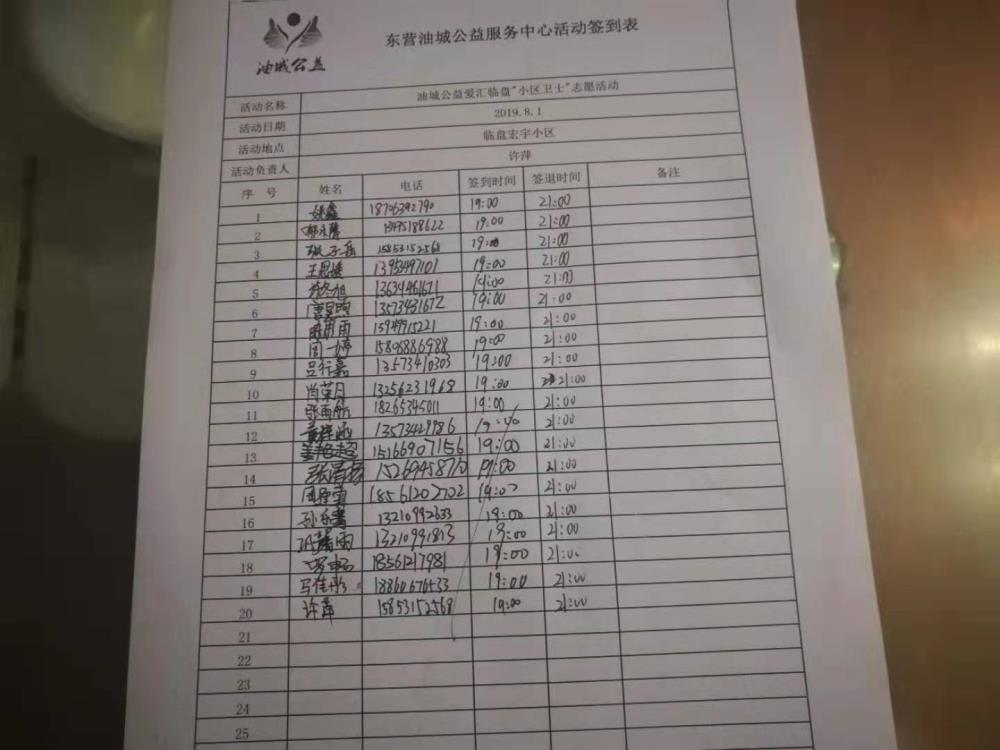 油城公益
东营油城公益服务中心活动签到表
活动名称 油城公益爱汇临盘"小区卫士"志愿活动
活动日期 2019.8.1
活动地点 临盘宏宇小区
活动负责人 许萍
序 号 姓名 电话 签到时间 签退时间 备注
1 姚鑫 18706392790 19:00 21:00
2 13475188622 19:00 21:00
3 15853152568 19:00 21:00
4 13953497101 19:00 21:00
5 13634961671 19:00 21:00
6 13573431672 19:00 21:00
7 15949915221 19:00 21:00
8 周一婷 15806886988 19:00 21:00
9 吕行嘉 13573410303 19:00 21:00
10 肖荣月 13256231968 19:00 21:00
11 张雨航 18265345011 19:00 21:00
12 13573429786 19:00 21:00
13 姜艳超 15166907156 19:00 21:00
14 15269458710 19:00 21:00
15 18561202702 19:00 21:00
16 13210992633 19:00 21:00
17 13210991813 19:00 21:00
18 18561217981 19:00 21:00
19 马佳彤 18860676533 19:00 21:00
20 许萍 15853152568 19:00 21:00
21
22
23
24
25